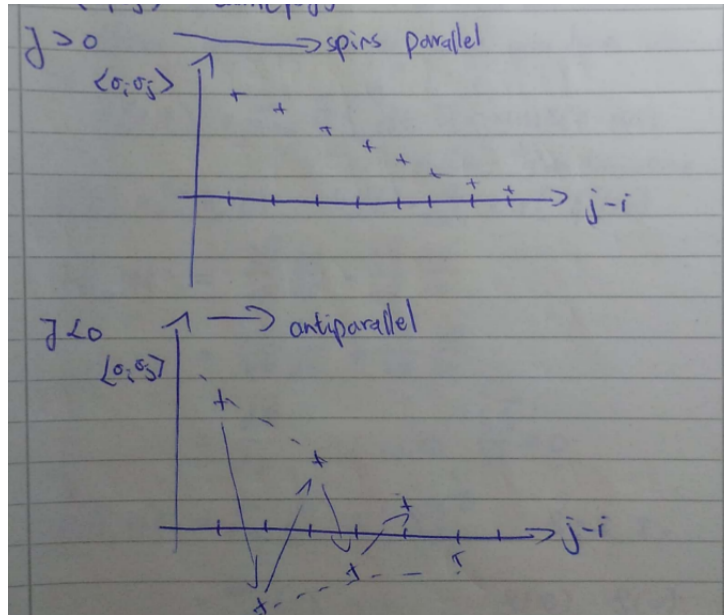 J>0 → spins parallel
⟨σᵢσⱼ⟩
j-i
J<0 → antiparallel
⟨σᵢσⱼ⟩
j-i